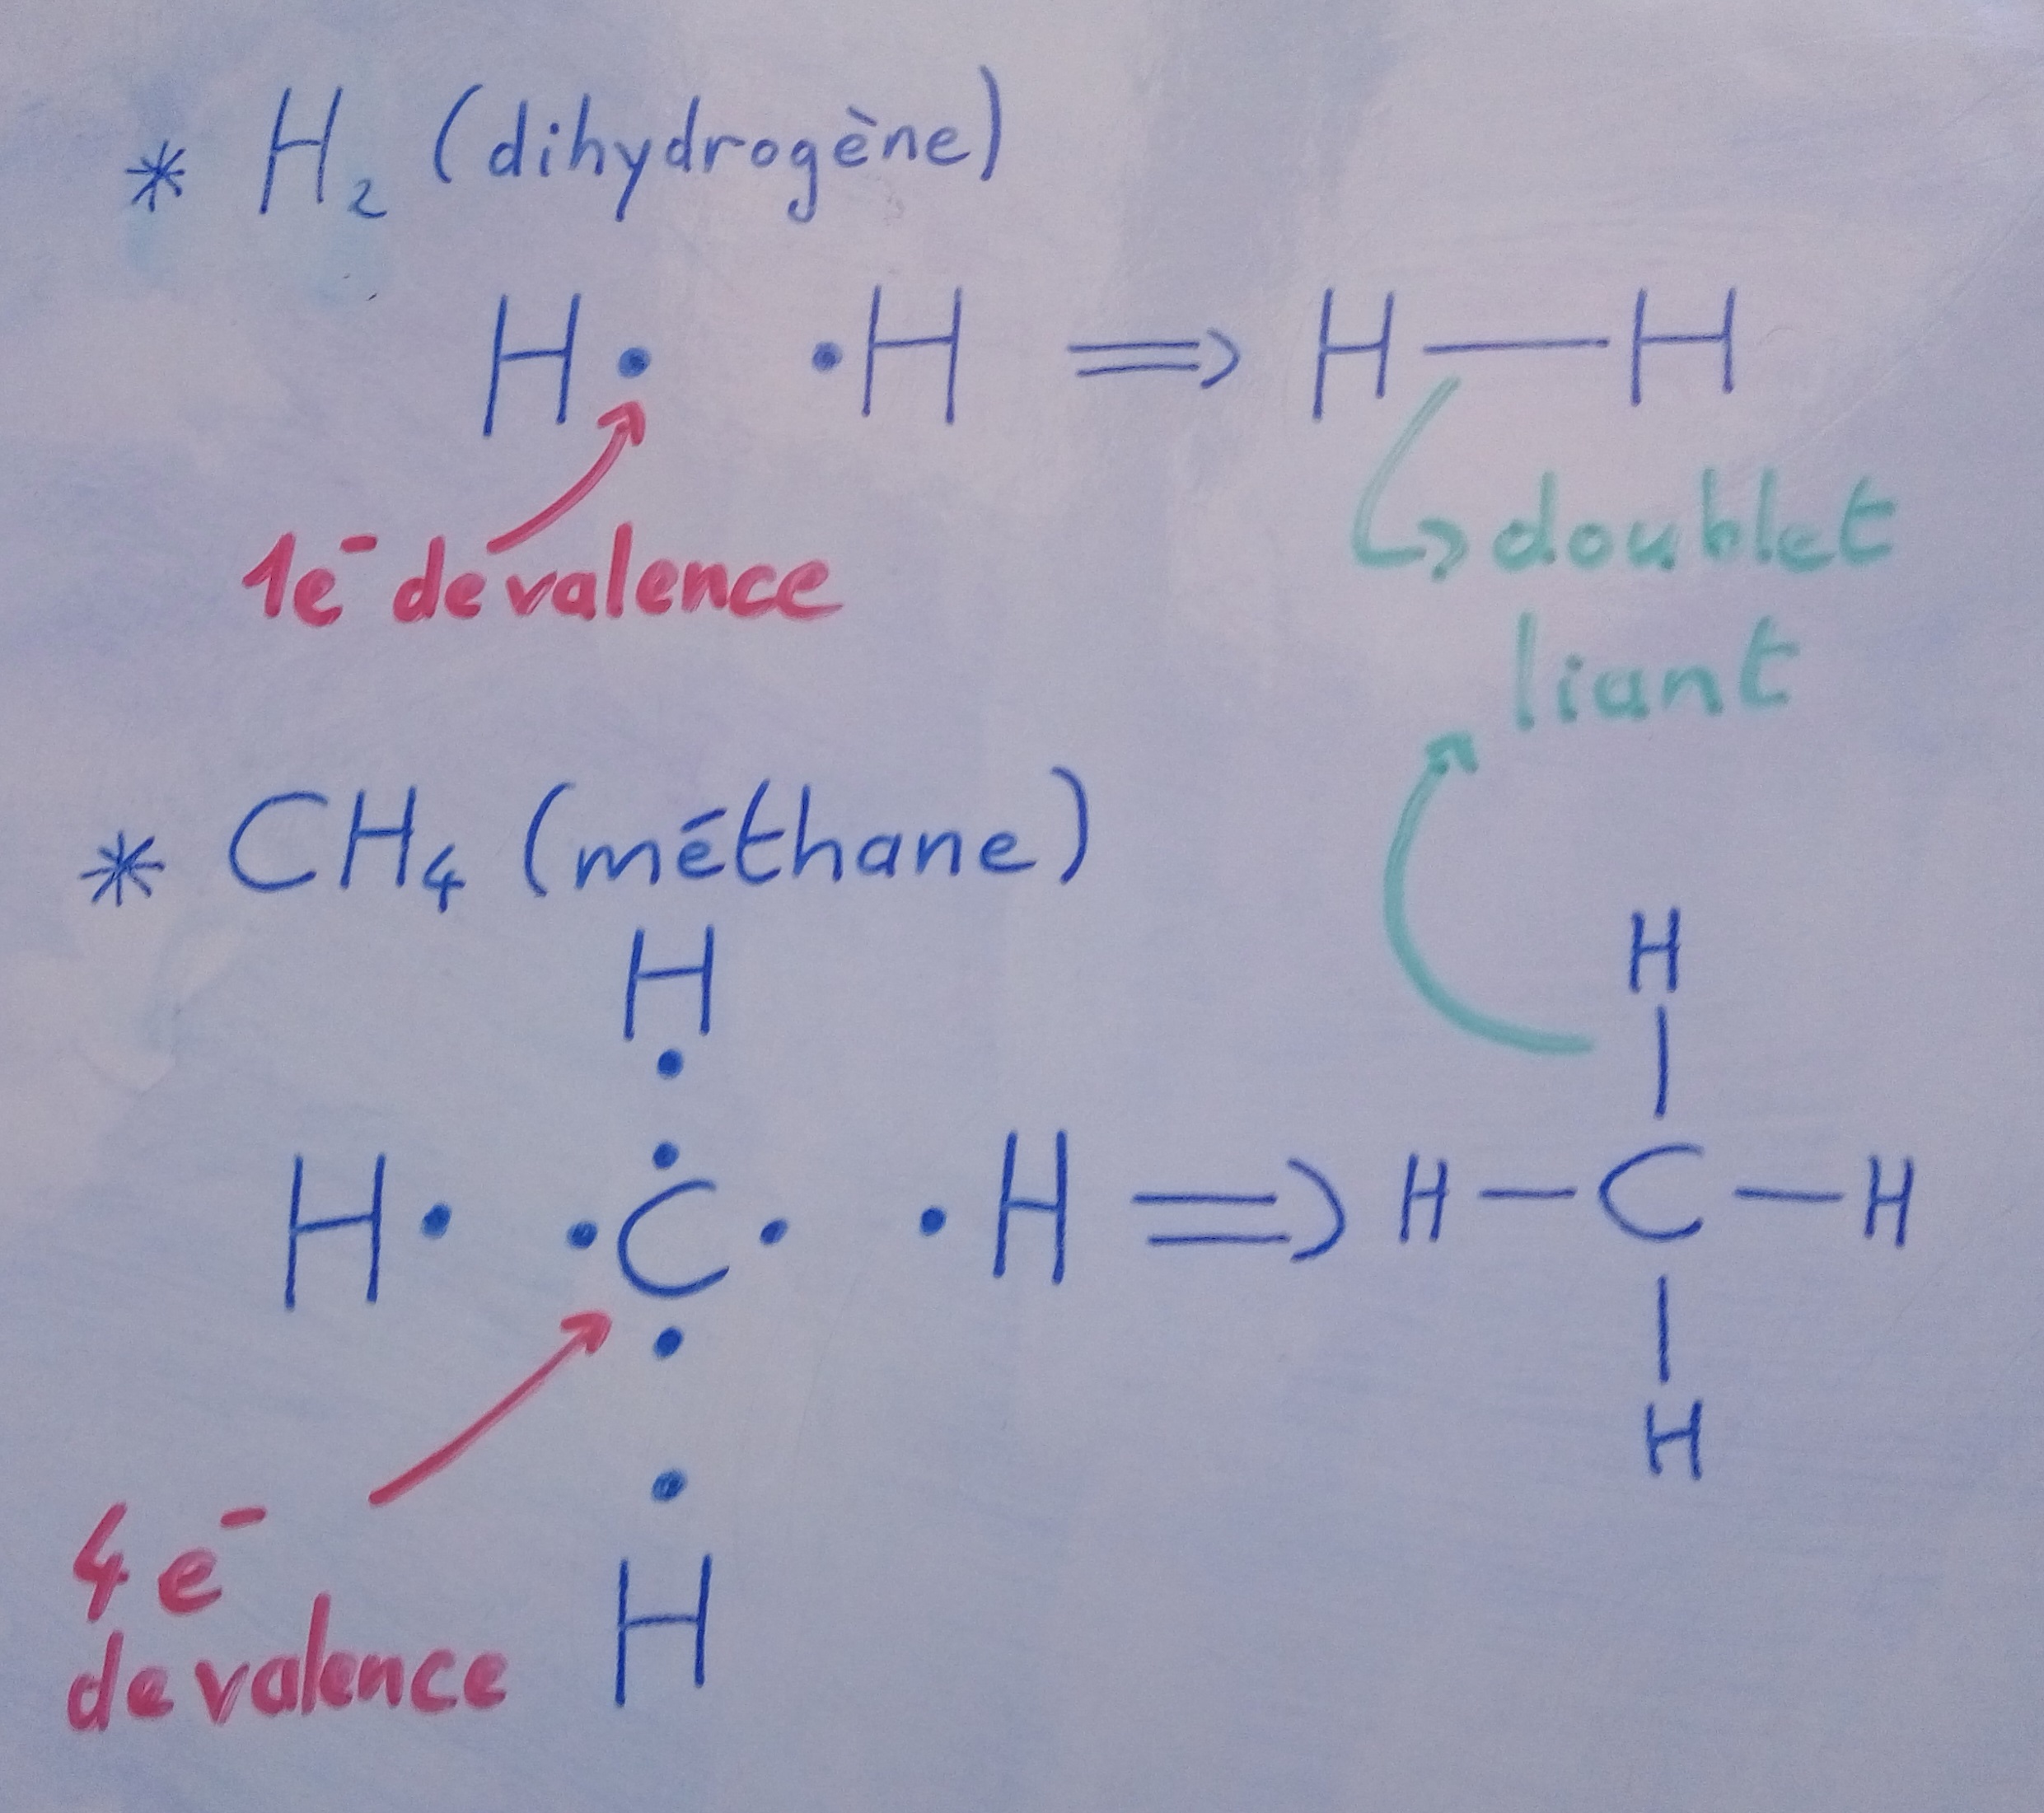 * H₂ (dihydrogène)
H• •H ⇒ H—H
1e⁻ de valence
↳ doublet
liant
* CH₄ (méthane)
H
•
•
H• •C• •H
•
•
H
⇒
H
|
H—C—H
|
H
4e⁻
de valence